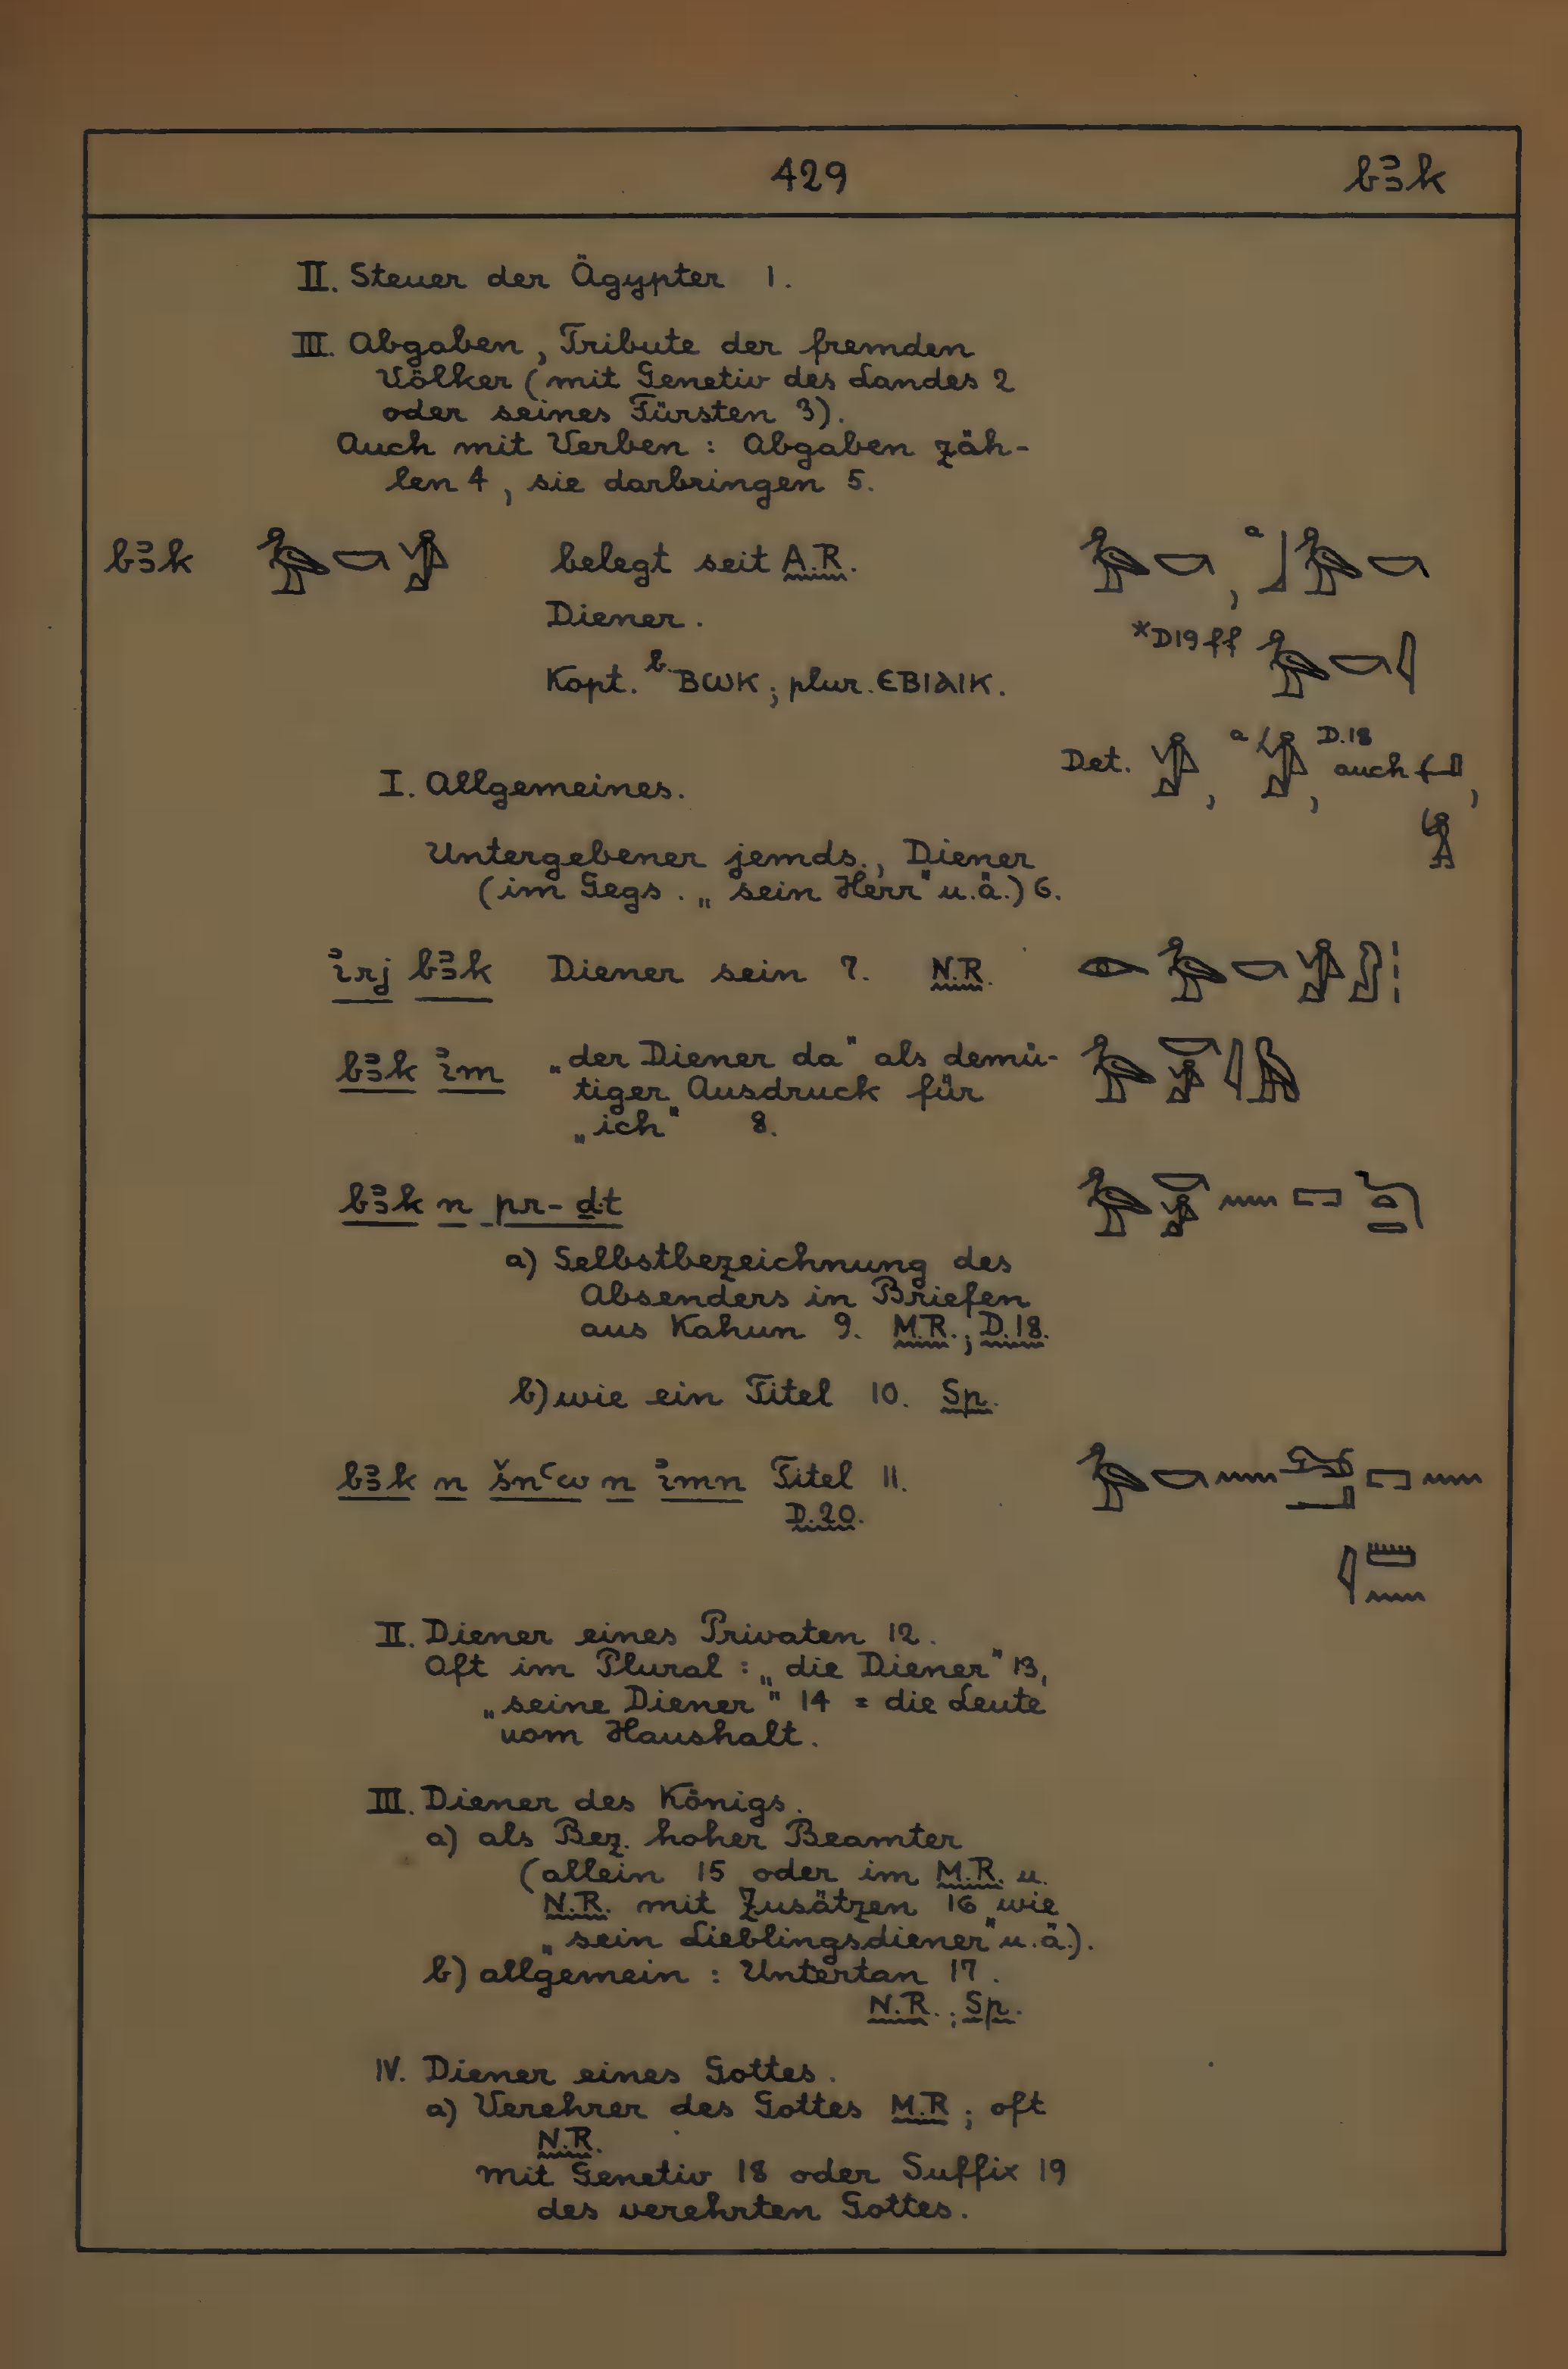 429 bꜣk
II. Steuer der Ägypter 1.
III. Abgaben, Tribute der fremden
Völker (mit Genetiv des Landes 2
oder seines Fürsten 3).
Auch mit Verben: Abgaben zäh-
len 4, sie darbringen 5.
bꜣk belegt seit A.R. , a
Diener. *D19ff
Kopt. b. ⲂⲰⲔ; plur. ⲈⲂⲒⲀⲒⲔ.
Det. , a , D.18 auch ,
I. Allgemeines.
Untergebener jemds., Diener
(im Gegs. „sein Herr" u.ä.) 6.
ꞽrj bꜣk Diener sein 7. N.R.
bꜣk ꞽm „der Diener da" als demü-
tiger Ausdruck für
„ich" 8.
bꜣk n pr-ḏ.t
a) Selbstbezeichnung des
Absenders in Briefen
aus Kahun 9. M.R.; D.18.
b) wie ein Titel 10. Sp.
bꜣk n šnꜥw n ꞽmn Titel 11.
D.20.
II. Diener eines Privaten 12.
Oft im Plural: „die Diener" 13,
„seine Diener" 14 = die Leute
vom Haushalt.
III. Diener des Königs.
a) als Bez. hoher Beamter
(allein 15 oder im M.R. u.
N.R. mit Zusätzen 16 wie
„sein Lieblingsdiener" u.ä.).
b) allgemein: Untertan 17.
N.R.; Sp.
IV. Diener eines Gottes.
a) Verehrer des Gottes M.R; oft
N.R.
mit Genetiv 18 oder Suffix 19
des verehrten Gottes.